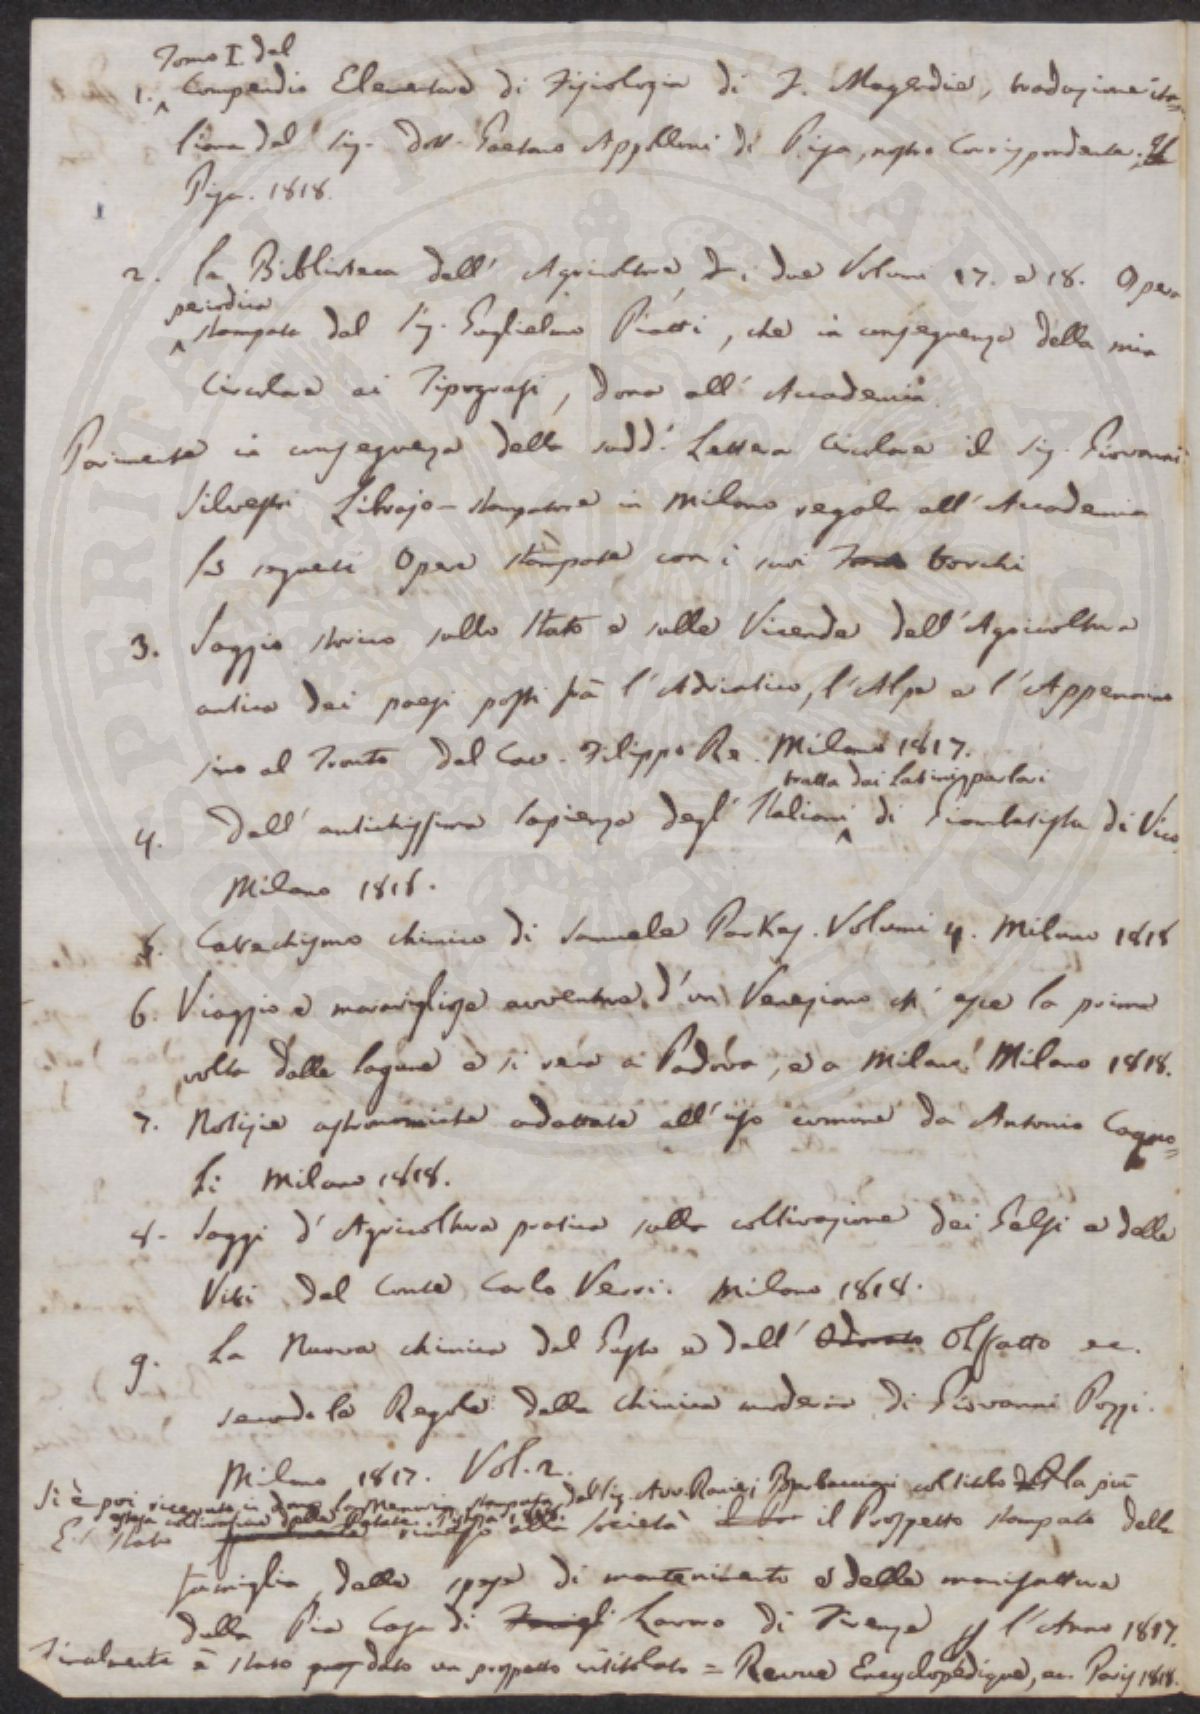 Tomo I. del
1. Compendio Elementare di Fisiologia di F. Magendie, traduzione ita=
liana del Sig. Dott. Gaetano Apolloni di Pisa, nostro Corrispondente.
Pisa. 1818.
2. La Biblioteca dell' Agricoltore, i due Volumi 17. e 18. Opera
periodica
stampata dal Sig. Guglielmo Piatti, che in conseguenza della mia
Circolare ai Tipografi, dona all' Accademia.
Parimente in conseguenza della sudd.ª Lettera Circolare il Sig. Giovanni
Silvestri Librajo-stampatore in Milano regala all' Accademia
le seguenti Opere stampate con i suoi torchi
3. Saggio storico sullo Stato e sulle Vicende dell' Agricoltura
antica dei paesi posti frà l' Adriatico, l' Alpe e l' Appennino
sino al Tronto del Cav. Filippo Re. Milano 1817.
tratta dai Latini parlari
4. Dell' antichissima Sapienza degl' Italiani di Giambatista di Vico.
Milano 1816.
5. Catechismo chimico di Samuele Parkes. Volumi 4. Milano 1818
6. Viaggio e maravigliose avventure d' un Veneziano ch' esce la prima
volta dalle lagune e si reca a Padova, e a Milano. Milano 1818.
7. Notizie astronomiche adattate all' uso comune da Antonio Cagno=
li Milano 1818.
8. Saggi d' Agricoltura pratica sulla coltivazione dei Gelsi e delle
Viti del Conte Carlo Verri. Milano 1818.
9. La Nuova chimica del Gusto e dell' Odorato Olfatto ec.
secondo le Regole della chimica moderna di Giovanni Pozzi.
Milano 1817. Vol. 2.
Si è poi ricevuta in dono la Memoria stampata del Sig. Avv. Ranieri Barbacciani col titolo la più
estesa coltivazione delle Patate. Pistoja 1818.
E' stato rimesso alla Società il Prospetto stampato della
famiglia, delle spese di mantenimento e delle manifatture
della Pia Casa di Lavoro di Firenze l' Anno 1817.
Finalmente è stato dato un prospetto intitolato = Revue Encyclopédique, ec. Paris 1818.